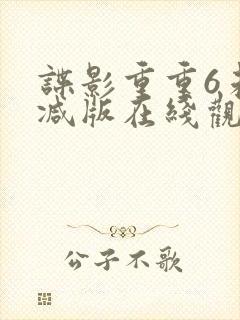 諜影重重6
减版在綫觀
公子不歌